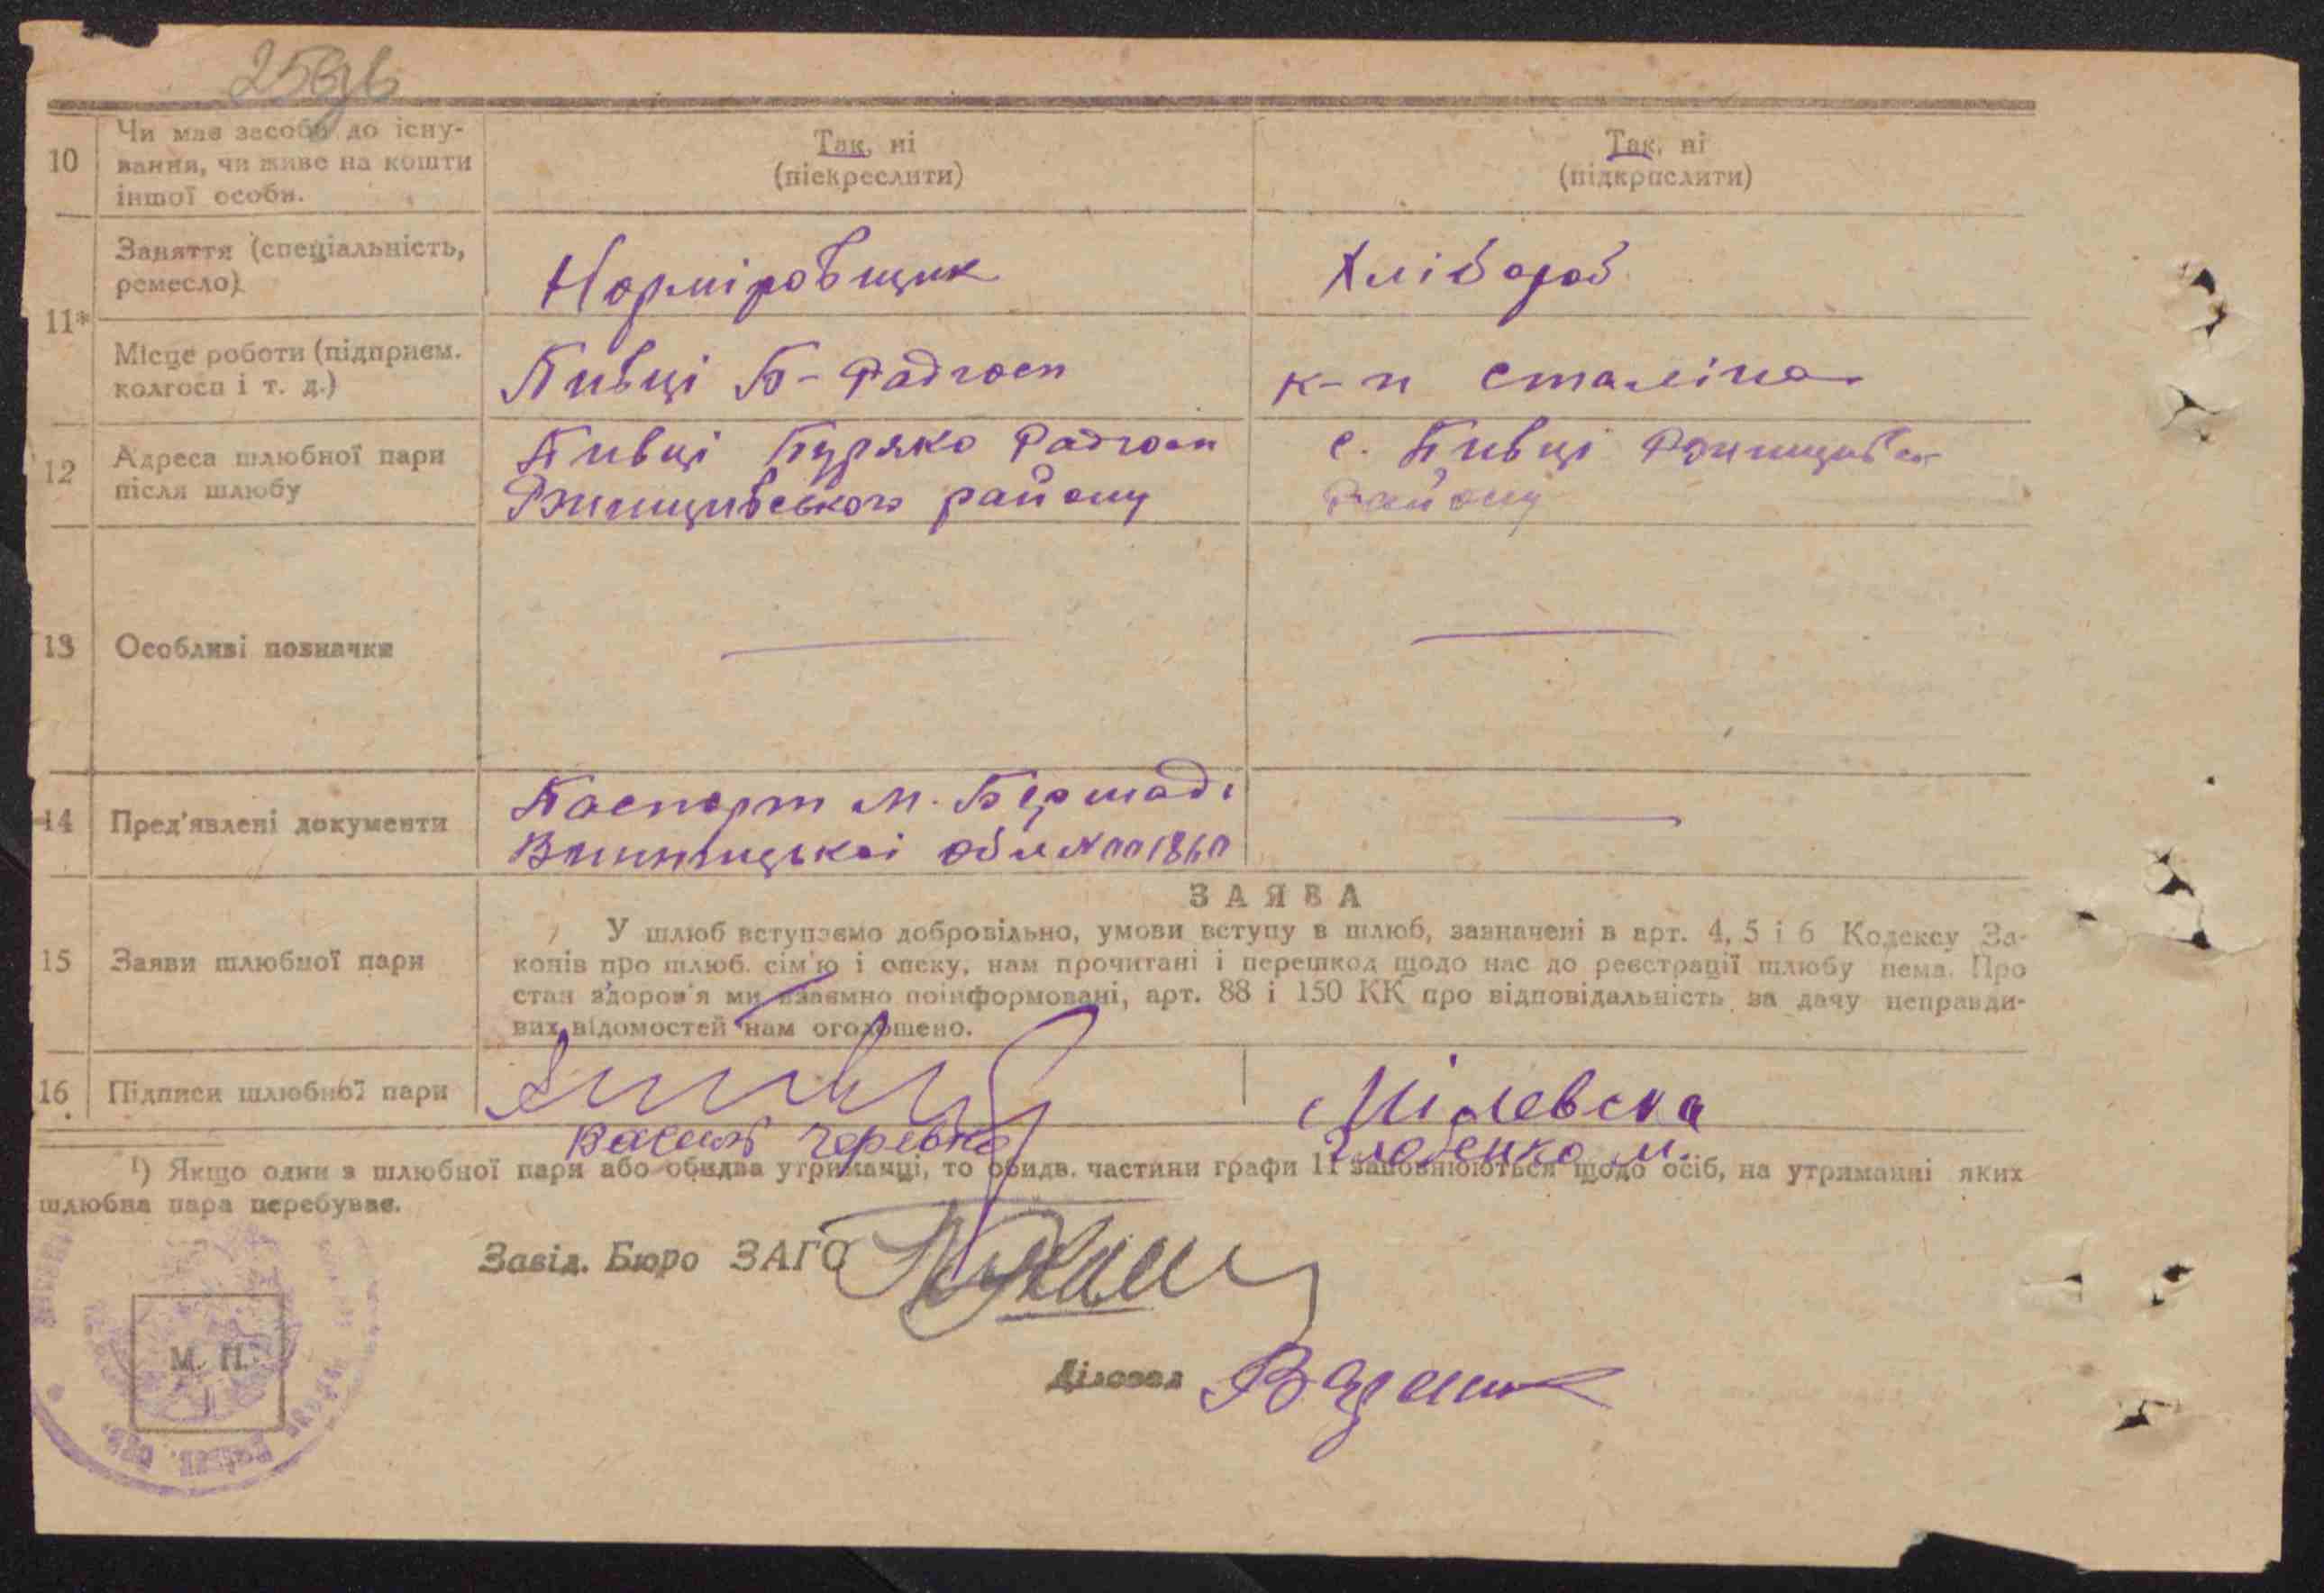 10
Чи має засоби до існу-
вання, чи живе на кошти
іншої особи.
Так, ні
(піекреслити)
Так, ні
(підкрпслити)
11*
Заняття (спеціальність,
ремесло)
Норміровщик
Хлібороб
Місце роботи (підприєм.
колгосп і т. д.)
Пивці Б- Радгосп
к-п Сталіна
12
Адреса шлюбної пари
після шлюбу
Пивці Буряко Радгосп
Ржищивського району
с. Пивці Ржищивськ
Району
13
Особливі позначки
14
Пред'явлені документи
Паспорт м. Бершаді
Винницькоі обл
15
Заяви шлюбної пари
ЗАЯВА
У шлюб вступаємо добровільно, умови вступу в шлюб, зазначені в арт. 4, 5 і 6 Кодексу За-
конів про шлюб. сім'ю і опеку, нам прочитані і перешкод щодо нас до реєстрації шлюбу нема. Про
стан здоров'я ми взаємно поінформовані, арт. 88 і 150 КК про відповідальність за дачу неправди-
вих відомостей нам оголошено.
16
Підписи шлюбної пари
Мілевска
¹) Якщо один з шлюбної пари або обидва утриманці, то обидв. частини графи 11 заповнюються щодо осіб, на утриманні яких
шлюбна пара перебуває.
Завід. Бюро ЗАГС
М. П.
Діловод